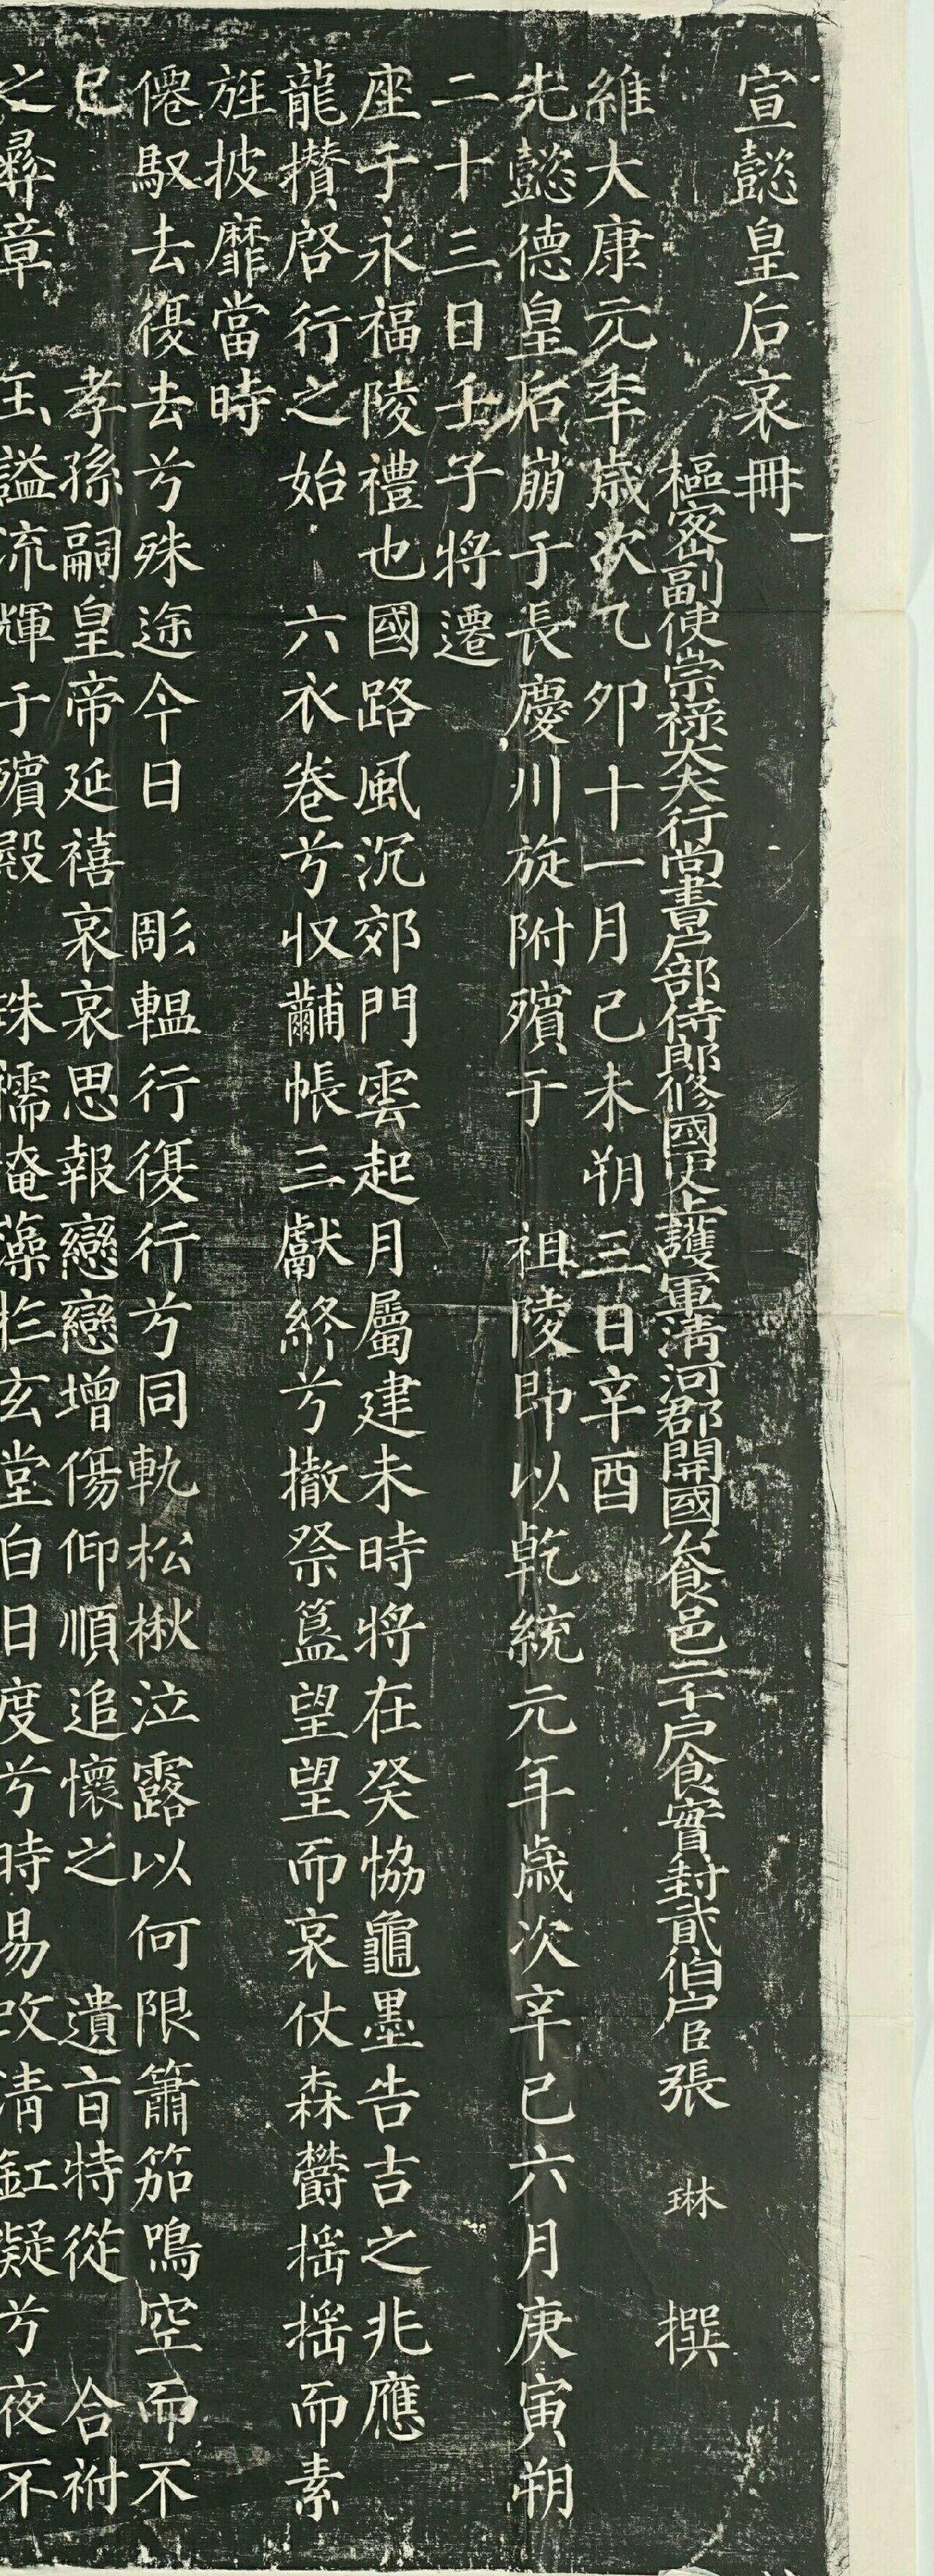 宣懿皇后哀冊
樞密副使崇祿大夫行尚書戶部侍郎修國史上護軍清河郡開國公食邑二千戶食實封貳伯户臣張琳撰
維大康元年歲次乙卯十一月己未朔三日辛酉
先懿德皇后崩于長慶川旋附殯于祖陵即以乾統元年歲次辛巳六月庚寅朔
二十三日壬子將遷
座于永福陵禮也國路風沉郊門雲起月屬建未時將在癸協龜墨告吉之兆應
龍攢啓行之始六衣卷兮収黼帳三獻終兮撤祭簋望望而哀仗森欝揺揺而素
旌披靡當時
僊馭去復去兮殊途今日彫轀行復行兮同軌松楸泣露以何限簫笳鳴空而不
已孝孫嗣皇帝延禧哀哀思報戀戀增傷仰順追懷之遺旨特從合祔
之彝章玉謚流輝于殯殿珠襦掩藻於玄堂白日度兮時易改清釭凝兮夜不